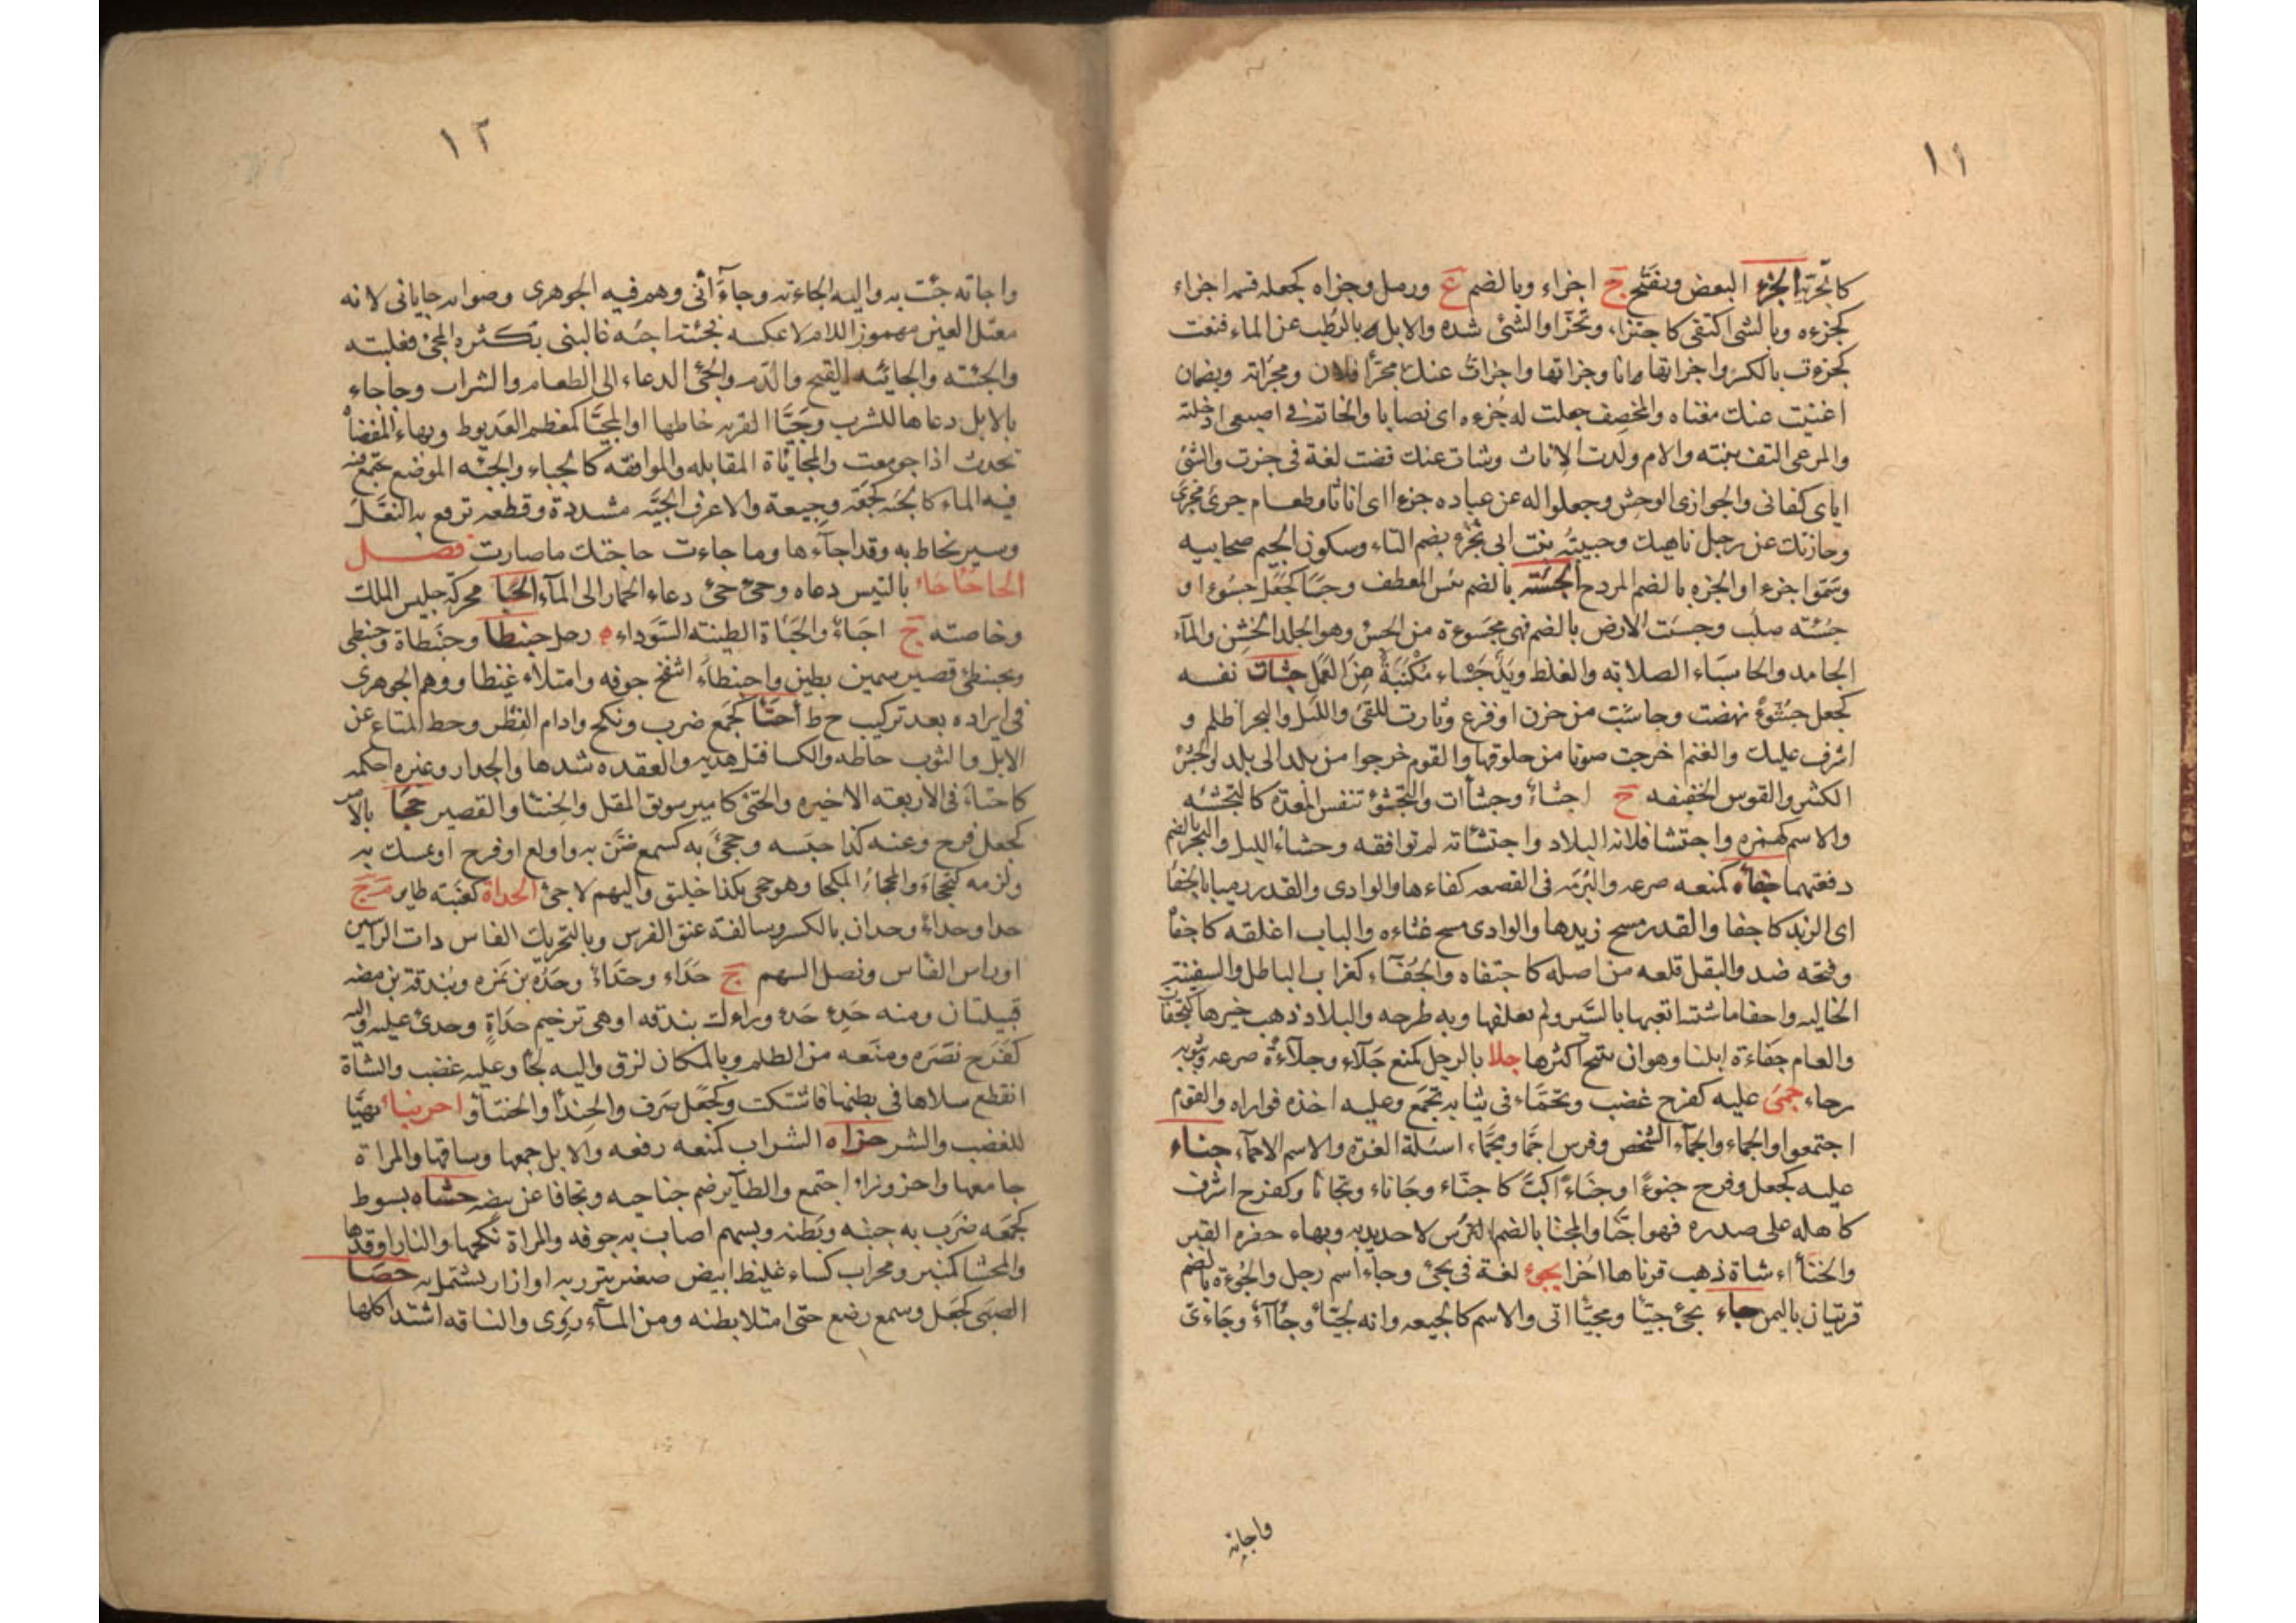 ١١
كاتجرته الجزء البعض ويفتح ج اجزاء وبالضم ع ورمل وجزاه كجعله قسمه اجزاء
كجزءه وبالشى اكتفى كاجتزا، وتجزا والشئ شده والابل بالرطب عن الماء قنعت
كجزءت بالكسر واجزاتها انا وجزاتها واجزات عنك مجزأ فلان ومجزاته ويضمان
اغنيت عنك مغناه والمخصف جعلت له جزءه اى نصابا والخاتم فى اصبعى ادخلته
والمرعى التف نبته والام ولدت الاناث وشات عنك قضت لغة فى جزت والشئ
اياى كفانى والجوازى الوحش وجعلوا له عن عباده جزءا اى اناثا وطعام جزئ مجزئ
وجازئك عن رجل ناهيك وحبيبته بنت ابى تجزء بضم التاء وسكون الجيم صحابيه
وسموا جزءا والجزه بالضم المردح الجسته بالضم يبس المعطف وجسا كجعل جسوءا و
جسئه صلب وجست الارض بالضم فهى مجسوءة من الجسئ وهو الجلد الخشن والمآء
الجامد والجاسياء الصلابه والغلظ ويد جساء مكنبة من العمل جشات نفسه
كجعل جشوءً نهضت وجاشت من حزن او فزع وثارت للقئ والليل والبحر اظلم و
اشرف عليك والغنم اخرجت صوتا من حلوقها والقوم خرجوا من بلد الى بلد والجشئ
الكثير والقوس الخفيفه ج اجشاءٌ وجشأات والتجشؤ تنفس المعدة كالتجشئه
والاسم كهمزه واجتشا فلانا البلاد واجتشأته لم توافقه وجشاء الليل والبحر بالضم
دفعتهما جفأه كمنعه صرعه والبرمه فى القصعه كفاءها والوادى والقدر رميا بالجفا
اى الزبد كاجفا والقدر مسح زبدها والوادى مسح غثاءه والباب اغلقه كاجفأ
وفتحه ضد والبقل قلعه من اصله كاجتفاه والجفآء كغراب الباطل والسفينه
الخاليه واجفا ماشته اتعبها بالسير ولم يعلفها وبه طرحه والبلاد ذهب خيرها كتجفات
والعام جفاءة ابلنا وهو ان ينتج اكثرها جلا بالرجل كمنع جلاء وجلاءة صرعه وبثوبه
رماه جمى عليه كفرح غضب وتجماء فى ثيابه تجمع وعليه اخذه فواراه والقوم
اجتمعوا والجماء والجمآء الشخص وفرس اجما ومجماء، اسئلة الغرة والاسم الاجمآء جناء
عليه كجعل وفرح جنوءا وجناءً اكب كاجنا وجاناء وتجانا وكفرح اشرف
كاهله على صدره فهو اجنا والمجنا بالضم الترس لا حديد به وبهاء حفره القبر
والجنأاء شاة ذهب قرناها اخرا يجوء لغة فى يجئ وجاءا اسم رجل والجؤة بالضم
قريتان باليمن جاء يجئ جيئا ومجيئا اتى والاسم كالجيعه وانه لجيّأ وجآأ وجاءى
واجاته
١٢
واجاته جئت به واليه الجاءته وجآءَ انى وهم فيه الجوهرى وصوابه جايانى لانه
معتل العين مهموز اللام لا عكسه فجئته اجئه غالبنى بكثره المجئ فغلبته
والجئته والجايئه القيح والدم والجئ الدعاء الى الطعام والشراب وجاجاء
بالابل دعاها للشرب وجيّا القربه خاطها او المجيّا كمعظم العذيوط وبهاء المفضاة
تحدث اذا جومعت والمجايأة المقابله والموافقه كالجياء والجئه الموضع يجتمع
فيه الماء كالجئه كجعة وجيعة والاعرف الجيّه مشددة وقطعه ترقع به النعل
وسير يخاط به وقد اجآءها وما جاءت حاجتك ما صارت فصل
الحا حاحاء بالتيس دعاه وحئ حئ دعاء الحمار الى المآء الحبا محركة جليس الملك
وخاصته ج احباءٌ والحباة الطينه السوداء ه رجل حبنطا وحبنطاة وحبنطى
ومحبنطئ قصير سمين بطين واحبنطاء انتفخ جوفه وامتلاء غيظا ووهم الجوهرى
فى ايراده بعد تركيب ح ط أ حتأ كجمع ضرب ونكح وادام النظر وحط المتاع عن
الابل والثوب خاطه والكسا فتل هدبه والعقده شدها والجدار وغيره احكمه
كاحتاء فى الاربعته الاخيره والحتئ كامير سويق المقل والحنتاو القصير حجا بالامر
كجعل فرح وعنه كذا حبسه وحجئ به كسمع ضن به واولع او فرح او تمسك به
ولزمه كتحجاء والمحجاء الملجا وهو حجئ بكذا خليق واليهم لاجئ الحداة كعنبه طاير م ج
حدا وحداءٌ وحدان بالكسر وسالفة عنق الفرس وبالتحريك الفاس ذات الراسين
او راس الفاس ونصل السهم ج حداء وحداءٌ وحداه بن نمره وبندقة بن مضه
قبيلتان ومنه حدء حدء وراءك بندقه او هى ترخيم حداةٍ وحدئ عليه واليه
كفرح نصره ومنعه من الظلم وبالمكان لزق واليه لجا وعليه غضب والشاة
انقطع سلاها فى بطنها فاشتكت وكجعل صرف والحندأ والحنتاو احرنباء تهيا
للغضب والشر حزاه الشراب كمنعه رفعه والابل جمعها وساقها والمراة
جامعها واحزوزاء اجتمع والطآير ضم جناحيه وتجافا عن بيضه حشاه بسوط
كجمعه ضرب به جنبه وبطنه وبسهم اصاب به جوفه والمراة نكحها والنار اوقدها
والمحشا كمنبر ومحراب كساء غليظ ابيض صغير يتزر به او ازار يشتمل به حصا
الصبى كجعل وسمع رضع حتى امتلا بطنه ومن المآء روى والناقه اشتد اكلها